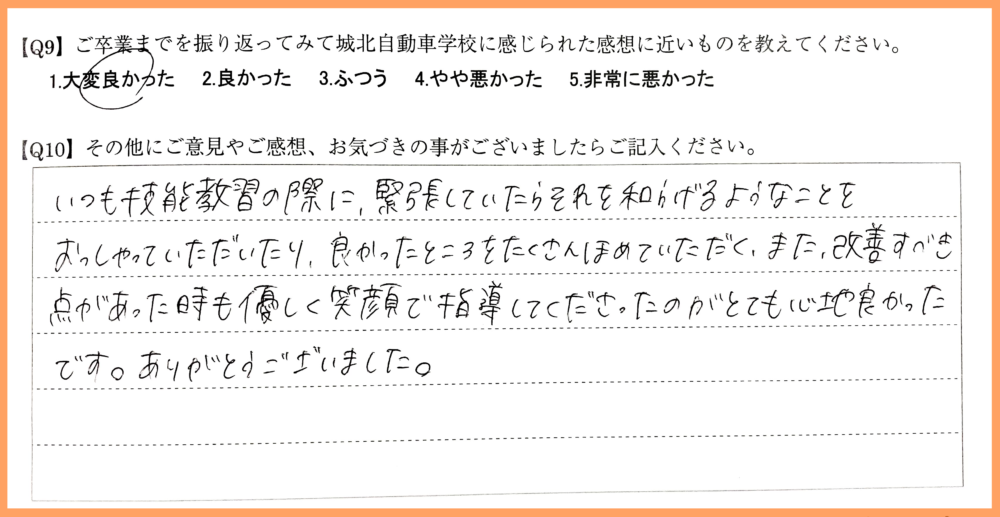 【Q9】ご卒業までを振り返ってみて城北自動車学校に感じられた感想に近いものを教えてください。
1.大変良かった 2.良かった 3.ふつう 4.やや悪かった 5.非常に悪かった
【Q10】その他にご意見やご感想、お気づきの事がございましたらご記入ください。
いつも技能教習の際に、緊張していたらそれを和らげるようなことを
おっしゃっていただいたり、良かったところをたくさんほめていただく、また、改善すべき
点があった時も優しく笑顔で指導してくださったのがとても心地良かった
です。ありがとうございました。